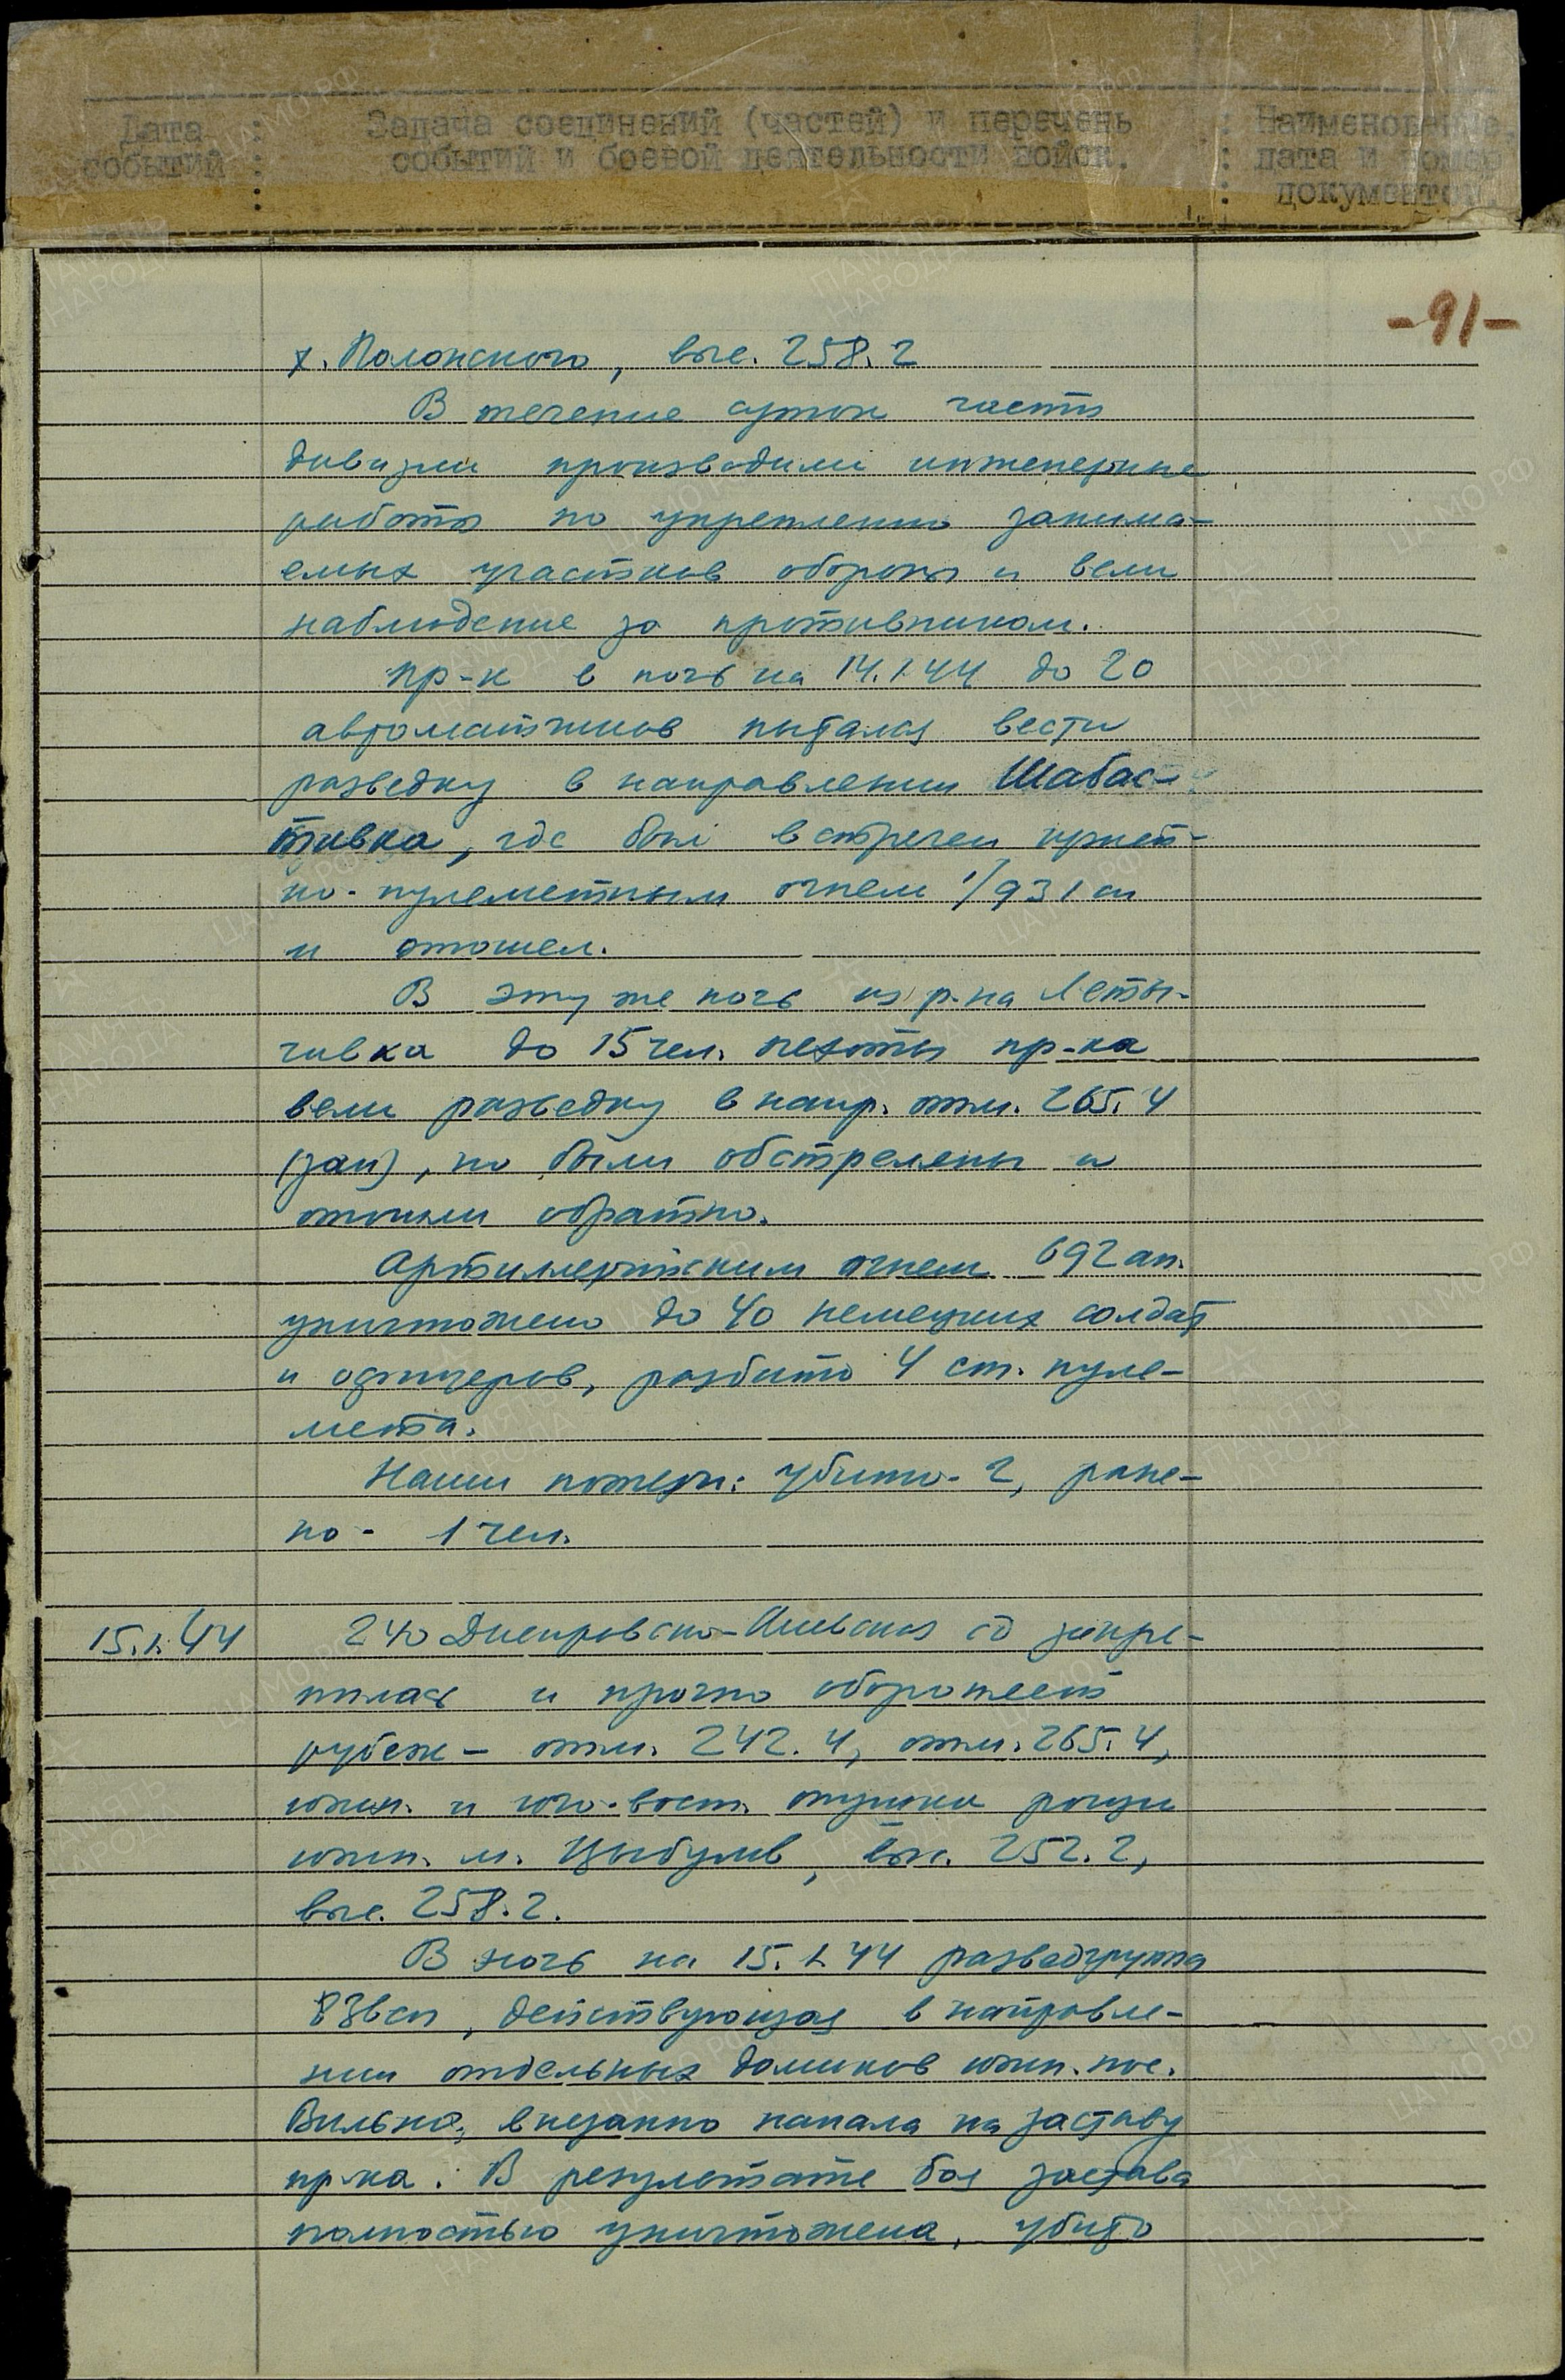 Дата : Задача соединений (частей) и перечень : Наименование,
событий : событий и боевой деятельности войск. : дата и номер
: документов.
-91-
х. Полонского, выс. 258.2
В течение суток части
дивизии производили инженерные
работы по укреплению занима-
емых участков обороны и вели
наблюдение за противником.
Пр-к в ночь на 14.1.44 до 20
автоматчиков пытался вести
разведку в направлении Шабас-
тивка, где был встречен
но-пулеметным огнем 1/931 сп
и отошел.
В эту же ночь из р-на Леты-
чивка до 15 чел. пехоты пр-ка
вели разведку в напр. отм. 265.4
(зап), но были обстреляны и
отошли обратно.
Артиллерийским огнем 692 ап.
уничтожено до 40 немецких солдат
и офицеров, разбито 4 ст. пуле-
мета.
Наши потери: убито - 2, ране-
но - 1 чел.
15.1.44 240 Днепровско-Киевская сд закре-
пилась и прочно обороняет
рубеж - отм. 242.4, отм. 265.4,
южн. и юго-вост. опушки рощи
южн. м. Цыбулев, выс. 252.2,
выс. 258.2.
В ночь на 15.1.44 разведгруппа
836сп, действующая в направле-
нии отдельных домиков южн. пос.
Вильно, внезапно напала на заставу
пр-ка. В результате боя застава
полностью уничтожена, убито